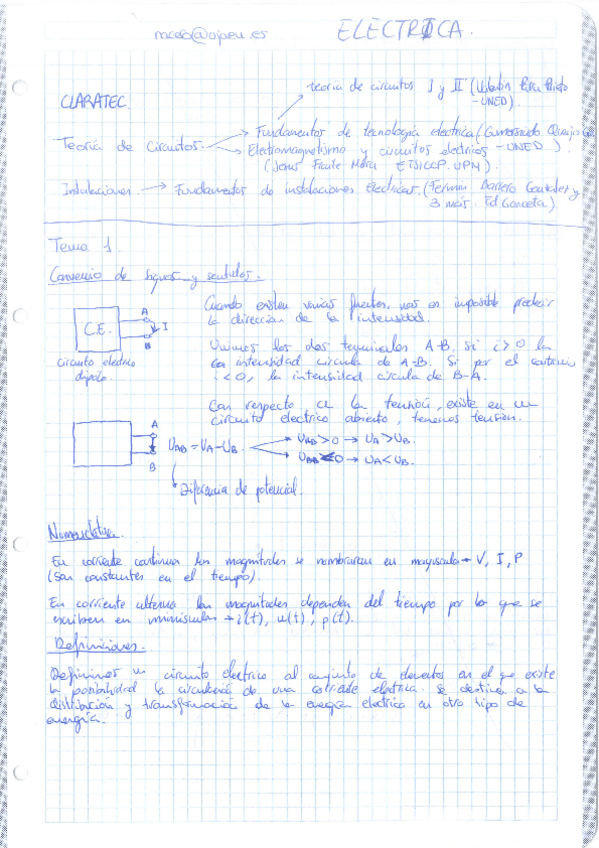 ELECTRICA.
CLARATEC.
teoría de circuitos I y II (Valentín Parra Prieto
-UNED).
Teoría de Circuitos. → Fundamentos de tecnología eléctrica (Gumersindo Queijo
→ Electromagnetismo y circuitos eléctricos -UNED).
(Jesús Fraile Mora ETSICCP. UPM)
Instalaciones → Fundamentos de instalaciones eléctricas. (Fermín Barrero González y
3 más. Ed Garceta)
Tema 1.
Convenio de signos y sentidos.
A
C.E. I
B
circuito eléctrico
dipolo.
Cuando existen varias fuentes, nos es imposible predecir
la dirección de la intensidad.
los dos terminales A-B. si i>0 la
intensidad circula de A-B. Si por el contrario
i<0, la intensidad circula de B-A.
Con respecto a la tensión, existe en un
circuito eléctrico abierto, tenemos tensión.
A
B
UAB = UA - UB
UAB > 0 → UA > UB.
UAB < 0 → UA < UB.
Diferencia de potencial.
Nomenclatura.
En corriente continua las magnitudes se nombraran en mayuscula → V, I, P
(son constantes en el tiempo).
En corriente alterna las magnitudes dependen del tiempo por lo que se
escriben en minusculas → i(t), u(t), p(t).
Definiciones.
Definimos un circuito electrico al conjunto de elementos en el que existe
la posibilidad la circulación de una corriente electrica. Se destina a la
distribución y transformación de la energía electrica en otro tipo de
energía.